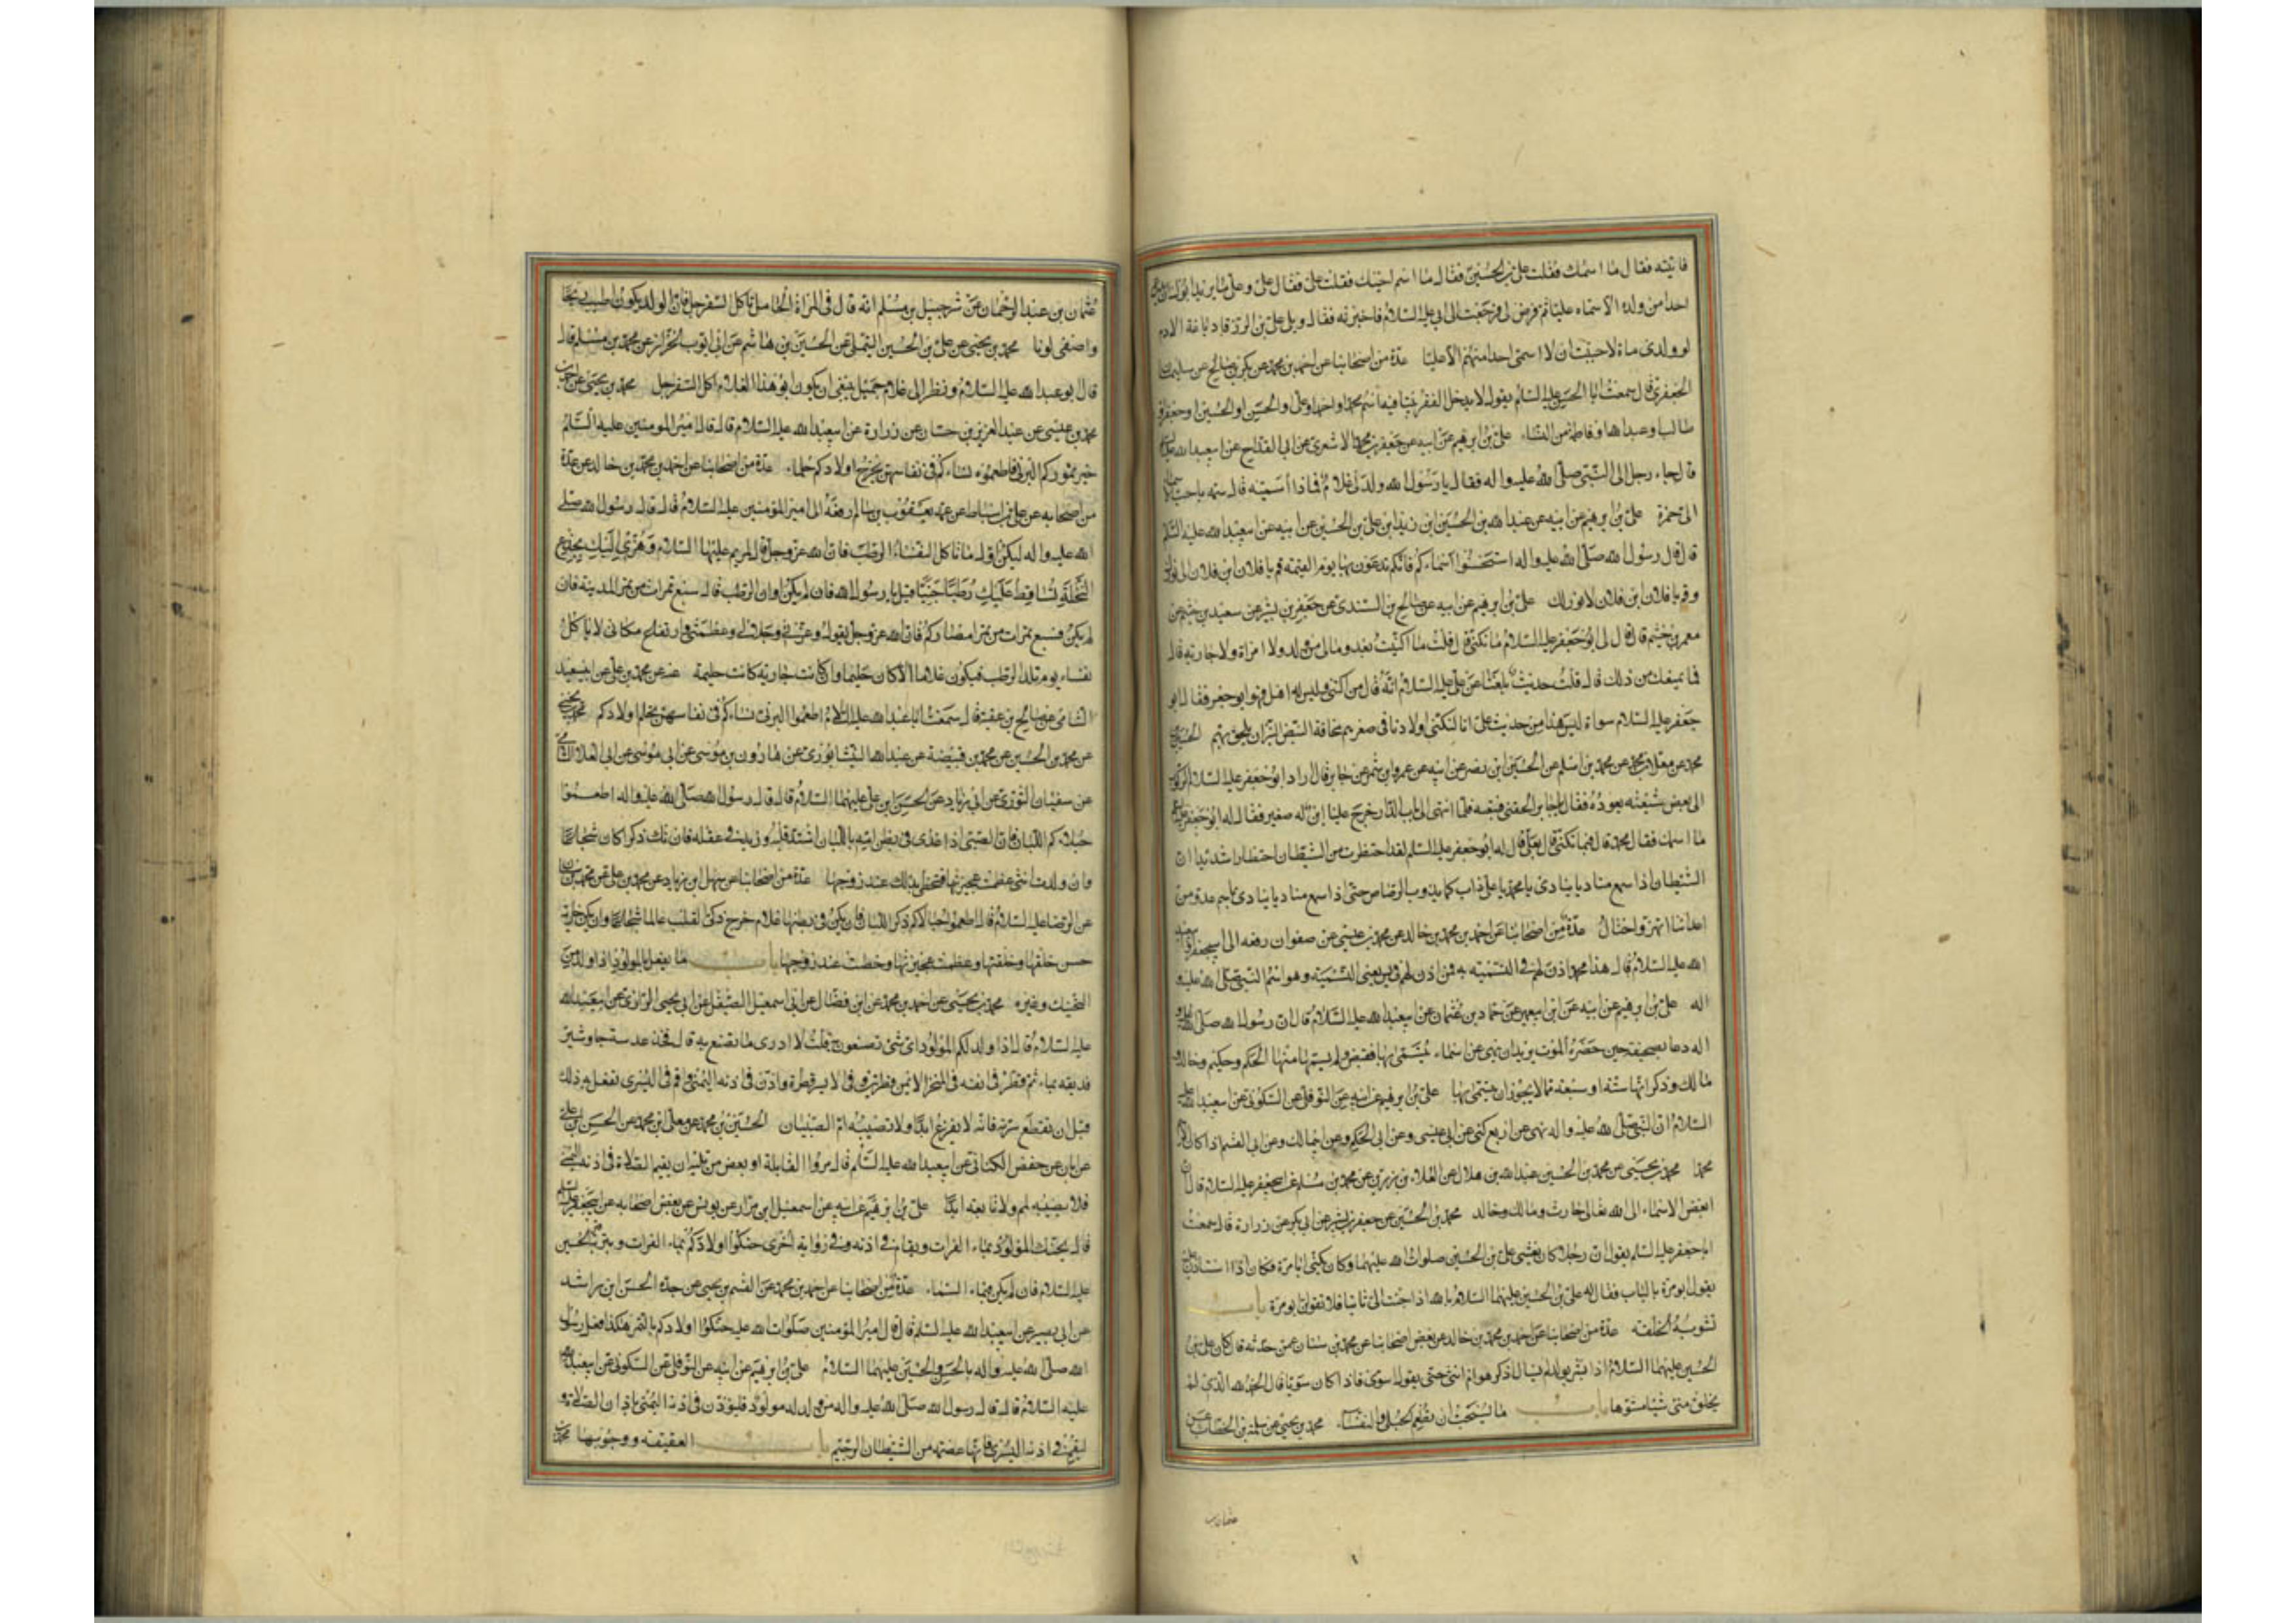 فاتيته فقال ما اسمك فقلت على بن الحسين فقال ما اسم اخيك فقلت على فقال على وعلى ما يريد ابوك ان يدع
احدا من ولده الا سماه عليا ثم فرض لى فرجعت الى ابى عليه السلام فاخبرته فقال ويلى على بن الزرقا دباغة الادم
لو ولد لى ماة لاحببت ان لا اسمى احدا منهم الا عليا عدة من اصحابنا عن احمد بن محمد عن بكر بن صالح عن سليمان
الجعفرى قال سمعت ابا الحسن عليه السلام يقول لا يدخل الفقر بيتا فيه اسم محمد او احمد او على او الحسن او الحسين او جعفر او
طالب او عبد الله او فاطمة من النساء على بن ابرهيم عن ابيه عن جعفر بن محمد الاشعرى عن ابن القداح عن ابيعبد الله عليه السلام
قال جاء رجل الى النبى صلى الله عليه واله فقال يا رسول الله ولد لى غلام فماذا اسميه قال سمه باحب الاسماء
الى حمزة على بن ابرهيم عن ابيه عن عبد الله بن الحسين ابن زيد ابن على بن الحسين عن ابيه عن ابيعبد الله عليه السلم
قال قال رسول الله صلى الله عليه واله استحسنوا اسماءكم فانكم تدعون بها يوم القيمة قم يا فلان ابن فلان الى نورك
وقم يا فلان ابن فلان لا نور لك على بن ابرهيم عن ابيه عن صالح بن السندى عن جعفر بن بشير عن سعيد بن خثيم عن
معمر بن خثيم قال قال لى ابو جعفر عليه السلام ما تكنى قال قلت ما اكتنيت بعد وما لى من ولد ولا امراة ولا جارية قال
فما يمنعك من ذلك قال قلت حديث بلغنا عن على عليه السلام انه قال من اكتنى وليس له اهل فهو ابو جعر فقال ابو
جعفر عليه السلام سواة ليس هذا من حديث على انا لنكنى اولادنا فى صغرهم مخافة النبز ان يلحق بهم الحسين بن
محمد عن معلى بن محمد عن محمد بن اسلم عن الحسين ابن نصر عن ابيه عن عمرو ابن شمر عن جابر قال اراد ابو جعفر عليه السلام الركوب
الى بعض شيعته يعوده فقال يا جابر الحقنى فتبعته فلما انتهى الى باب الدار خرج علينا ابن له صغير فقال له ابو جعفر عليه السلام
ما اسمك فقال محمد قال فبما تكنى قال بعلى قال له ابو جعفر عليه السلم لقد احتظرت من الشيطان احتظارا شديدا ان
الشيطان اذا سمع مناديا ينادى يا محمد يا على ذاب كما يذوب الرصاص حتى اذا سمع مناديا ينادى باسم عدو من
اعدائنا اهتز واختال عدة من اصحابنا عن احمد بن محمد بن خالد عن محمد بن عيسى عن صفوان رفعه الى ابيجعفر او ابيعبد
الله عليه السلام قال هذا محمد اذن لهم فى التسمية به فمن اذن لهم فى يس يعنى التسمية وهو اسم النبى صلى الله عليه و
اله على بن ابرهيم عن ابيه عن ابن ابيعمير عن حماد بن عثمان عن ابيعبد الله عليه السلام قال ان رسول الله صلى الله عليه و
اله دعا بصحيفة حين حضره الموت يريدان ينهى عن اسماء يتسمى بها فقبض ولم يسمها منها الحكم وحكيم وخالد و
مالك وذكر انها ستة او سبعة مما لا يجوز ان يتسمى بها على بن ابرهيم عن ابيه عن النوفلى عن السكونى عن ابيعبد الله عليه
السلام ان النبى صلى الله عليه واله نهى عن اربع كنى عن ابى عيسى وعن ابى الحكم وعن ابى مالك وعن ابى القسم اذا كان الاسم
محمدا محمد بن يحيى عن محمد بن الحسين عبد الله بن هلال عن العلاء بن رزين عن محمد بن مسلم عن ابيجعفر عليه السلام قال ان
ابغض الاسماء الى الله تعالى حارث ومالك وخالد محمد بن الحسين عن جعفر بن بشير عن ابن بكير عن زرارة قال سمعت
ابا جعفر عليه السلم يقول ان رجلا كان يغشى على بن الحسين صلوات الله عليهما وكان يكنى ابا مرة فكان اذا استاذن عليه
يقول ابو مرة بالباب فقال له على بن الحسين عليهما السلام بالله اذا جئت الى بابنا فلا تقولن ابو مرة باب
تسوية الخلقة عدة من اصحابنا عن احمد بن محمد بن خالد عن بعض اصحابنا عن محمد بن سنان عمن حدثه قال كان على بن
الحسين عليهما السلام اذا بشر بولد لم يسال اذكر هو ام انثى حتى يقول اسوى فاذا كان سويا قال الحمد لله الذى لم
يخلق منى شيئا مشوها باب ما يستحب ان تطعم الحبلى والنفساء محمد بن يحيى عن سلمة بن الخطاب عن
عثمان بن
عثمان بن عبد الرحمان عن شرحبيل بن مسلم انه قال فى المراة الحامل تاكل السفرجل فان الولد يكون اطيب ريحا
واصفى لونا محمد بن يحيى عن على بن الحسين التيملى عن الحسين بن هاشم عن ابى ايوب الخزاز عن محمد بن مسلم قال
قال ابو عبد الله عليه السلام ونظر الى غلام جميل ينبغى ان يكون ابو هذا الغلام اكل السفرجل محمد بن يحيى عن احمد بن
محمد بن عيسى عن عبد العزيز بن حسان عن زرارة عن ابيعبد الله عليه السلام قال قال امير المومنين عليه السلم
خير تموركم البرنى فاطعموه نساءكم فى نفاسهن تخرج اولادكم حلماء عدة من اصحابنا عن احمد بن محمد بن خالد عن عدة
من اصحابه عن على بن اسباط عن عمه يعقوب بن سالم رفعه الى امير المؤمنين عليه السلام قال قال رسول الله صلى
الله عليه واله ليكن اول ما تاكل النفساء الرطب فان الله عز وجل قال لمريم عليها السلام وهزى اليك بجذع
النخلة تساقط عليك رطبا جنيا قيل يا رسول الله فان لم يكن اوان الرطب قال سبع تمرات من تمر المدينة فان
لم يكن فسبع تمرات من تمر امصاركم فان الله عز وجل يقول وعزتى وجلالى وعظمتى وارتفاع مكانى لا ياكل
نفساء يوم تلد الرطب فيكون غلاما الا كان حليما وان كانت جارية كانت حليمة عنه عن محمد بن على عن ابى سعيد
الشامى عن صالح بن عقبة قال سمعت ابا عبد الله عليه السلام اطعموا البرنى نساءكم فى نفاسهن يحلم اولادكم محمد بن يحيى
عن محمد بن الحسين عن محمد بن قبيصة عن عبد الله النيشابورى عن هارون بن موسى عن ابى موسى عن ابى العلاء الشامى
عن سفيان الثورى عن ابى زياد عن الحسن ابن على عليهما السلام قال قال رسول الله صلى الله عليه واله اطعموا
حبلاكم اللبان فان الصبى اذا غذى فى بطن امه باللبان اشتد قلبه وزيد فى عقله فان يك ذكرا كان شجاعا
وان ولدت انثى عظمت عجيزتها فتحظى بذلك عند زوجها عدة من اصحابنا عن سهل بن زياد عن محمد بن على عن محمد بن سنان
عن الرضا عليه السلام قال اطعموا حبالاكم ذكر اللبان فان يكن فى بطنها غلام خرج ذكى القلب عالما شجاعا وان يكن جارية
حسن خلقها وخلقتها وعظمت عجيزتها وحظت عند زوجها باب ما يفعل بالمولود اذا ولد من
التحنيك وغيره محمد بن يحيى عن احمد بن محمد عن ابن فضال عن ابى اسمعيل الصيقل عن ابى يحيى الرازى عن ابيعبد الله
عليه السلام قال اذا ولد لكم المولود اى شئ تصنعون به قلت لا ادرى ما نصنع به قال فخذ عدسة جاوشير
فدیفه بماء ثم قطر فى انفه فى المنخر الايمن قطرتين وفى الايسر قطرة واذن فى اذنه اليمنى واقم فى اليسرى تفعل به ذلك
قبل ان تقطع سرته فانه لا يفزع ابدا ولا تصيبه ام الصبيان الحسين بن محمد عن معلى بن محمد عن الحسن بن على
عن ابان عن حفص الكناسى عن ابيعبد الله عليه السلم قال مروا القابلة او بعض من يليه ان يقيم الصلاة فى اذنه اليمنى
فلا يصيبه لمم ولا تابعه ابدا على بن ابرهيم عن ابيه عن اسمعيل ابن مرار عن يونس عن بعض اصحابه عن ابيجعفر عليه السلم
قال يحنك المولود بماء الفرات ويقام فى اذنه وفى رواية اخرى حنكوا اولادكم بماء الفرات وبتربة الحسين
عليه السلام فان لم يكن فبماء السماء عدة من اصحابنا عن احمد بن محمد عن القسم بن يحيى عن جده الحسن ابن راشد
عن ابى بصير عن ابيعبد الله عليه السلم قال قال امير المؤمنين صلوات الله عليه حنكوا اولادكم بالتمر هكذا فعل رسول
الله صلى الله عليه واله بالحسن والحسين عليهما السلام على بن ابرهيم عن ابيه عن النوفلى عن السكونى عن ابيعبد الله
عليه السلام قال قال رسول الله صلى الله عليه واله من ولد له مولود فليؤذن فى اذنه اليمنى باذان الصلاة و
ليقم فى اذنه اليسرى فانها عصمة من الشيطان الرجيم باب العقيقة ووجوبها محمد بن